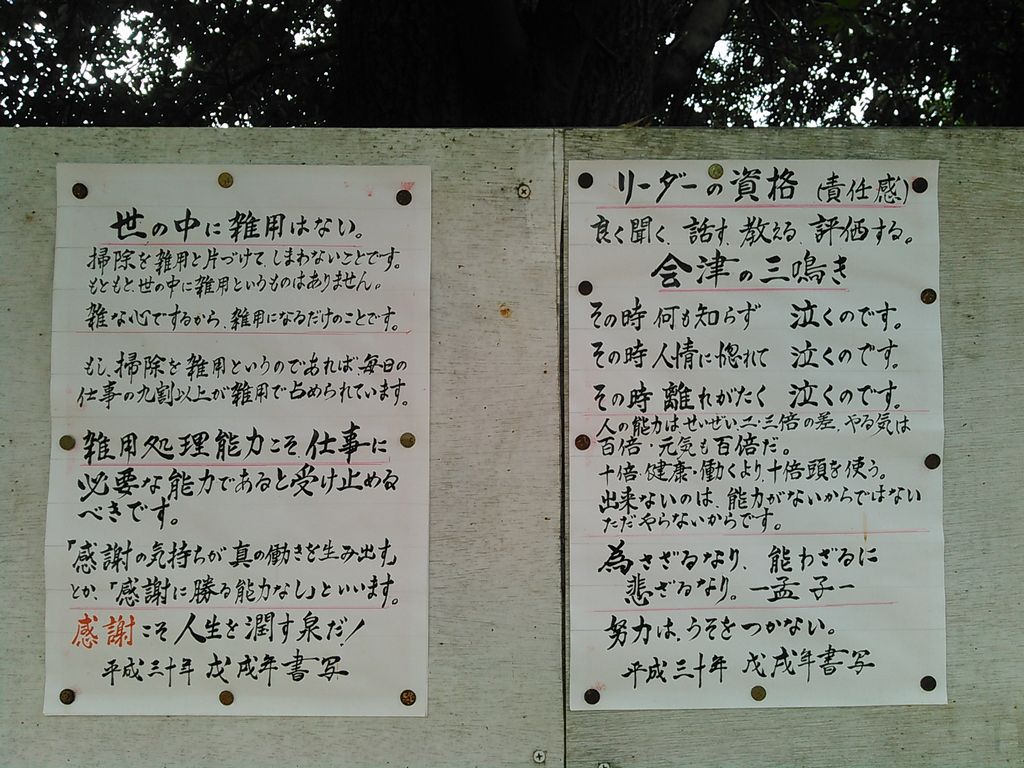 世の中に雑用はない。
掃除を雑用と片づけてしまわないことです。
もともと世の中に雑用というものはありません。
雑な心でするから、雑用になるだけのことです。
もし、掃除を雑用というのであれば毎日の
仕事の九割以上が雑用で占められています。
雑用処理能力こそ、仕事に
必要な能力であると受け止める
べきです。
「感謝の気持ちが真の働きを生み出す」
とか、「感謝に勝る能力なし」といいます。
感謝こそ人生を潤す泉だ！
平成三十年 戊戌年書写
リーダーの資格 (責任感)
良く聞く、話す、教える、評価する。
会津の三鳴き
その時 何も知らず 泣くのです。
その時 人情に惚れて 泣くのです。
その時 離れがたく 泣くのです。
人の能力はせいぜい二・三倍の差、やる気は
百倍・元気も百倍だ。
十倍・健康・働くより、十倍頭を使う。
出来ないのは、能力がないからではない
ただやらないからです。
為さざるなり、能わざるに
悲ざるなり。 ー孟子ー
努力は、うそをつかない。
平成三十年 戊戌年書写